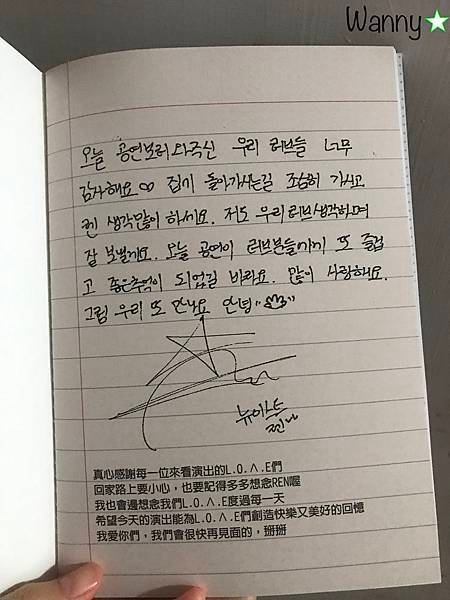 Wanny
오늘 공연보러와주신 우리 러브들 너무
감사해요♡ 집에 돌아가시는길 조심히 가시고
렌 생각많이 하세요. 저도 우리러브생각하며
잘 보낼게요. 오늘 공연이 러브분들에게 또 즐겁
고 좋은추억이 되었길 바라요. 많이 사랑해요.
그럼 우리 또 만나요 안녕"
뉴이스트
렌
真心感謝每一位來看演出的L.O.Λ.E們
回家路上要小心，也要記得多多想念REN喔
我也會邊想念我們L.O.Λ.E度過每一天
希望今天的演出能為L.O.Λ.E們創造快樂又美好的回憶
我愛你們，我們會很快再見面的，掰掰